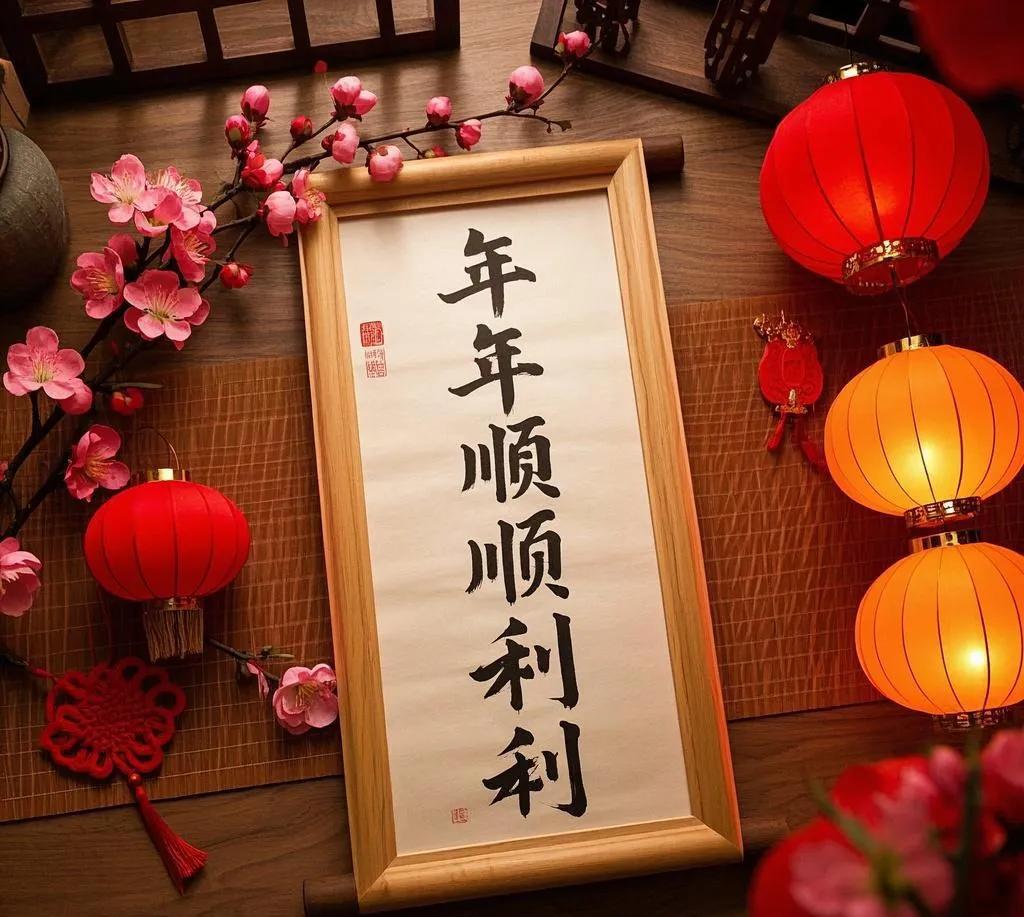 年年顺顺利利